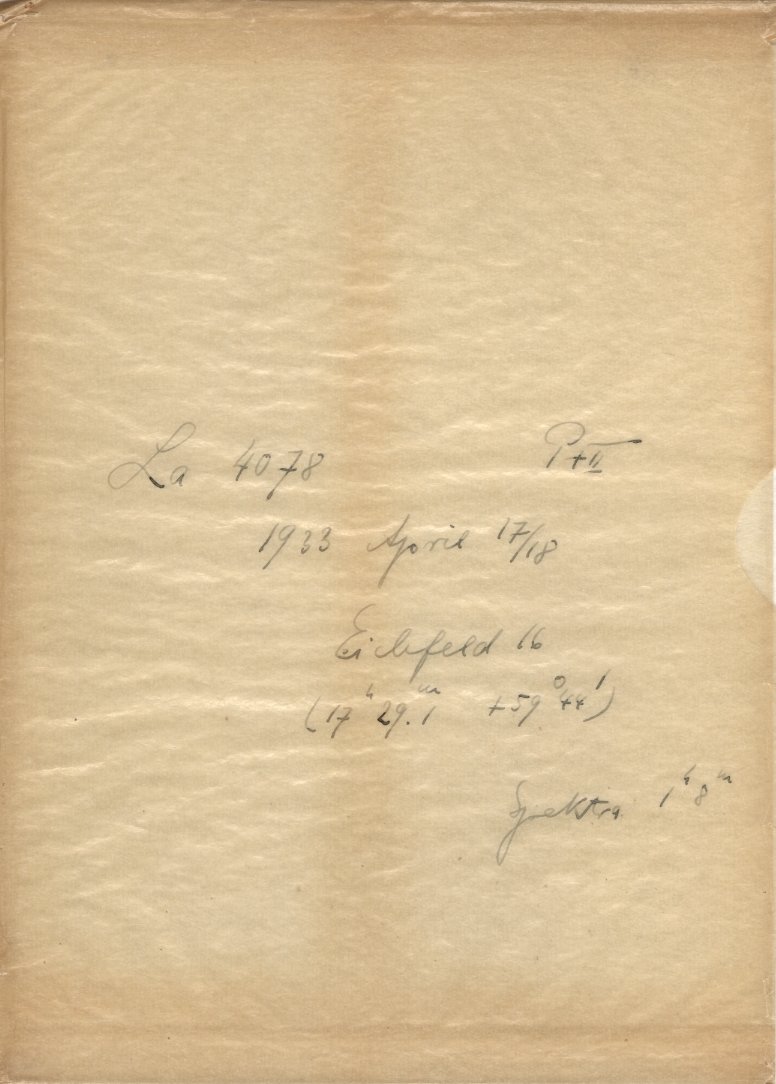 La 4078 P+II
1933 April 17/18
Eichfeld 16
(17ʰ 29.1ᵐ +59° 44')
Spektra 1ʰ 8ᵐ